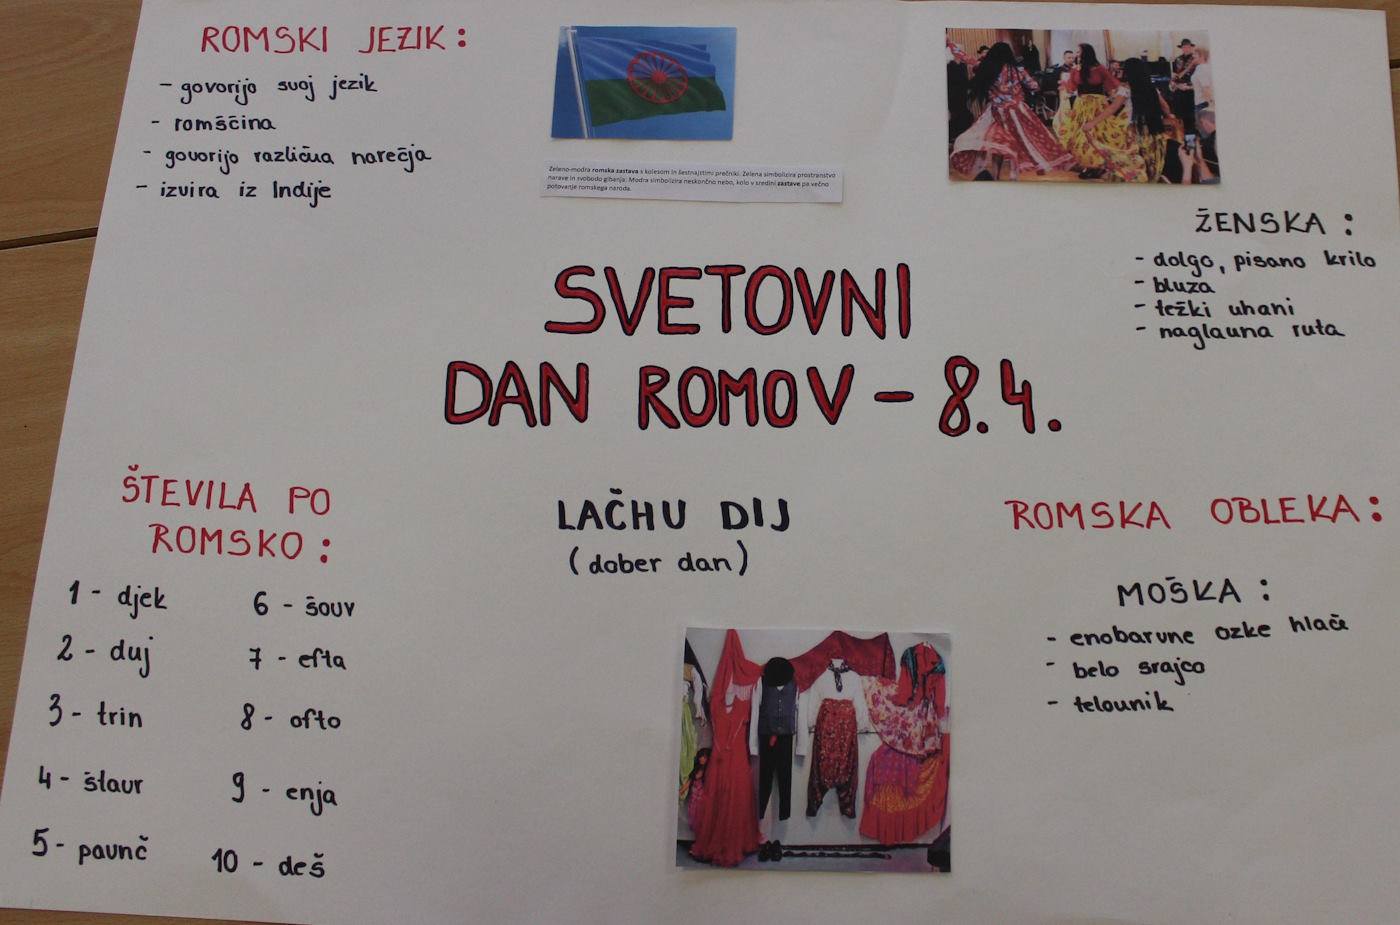 ROMSKI JEZIK:
- govorijo svoj jezik
- romščina
- govorijo različna narečja
- izvira iz Indije
Zeleno-modra romska zastava s kolesom in šestnajstimi prečniki. Zelena simbolizira prostranstvo
narave in svobodo gibanja. Modra simbolizira neskončno nebo, kolo v sredini zastave pa večno
potovanje romskega naroda.
ŽENSKA:
- dolgo, pisano krilo
- bluza
- težki uhani
- naglavna ruta
SVETOVNI
DAN ROMOV - 8.4.
ŠTEVILA PO
ROMSKO:
1 - djek
2 - duj
3 - trin
4 - štavr
5 - paunč
6 - šouv
7 - efta
8 - ofto
9 - enja
10 - deš
LAČHU DIJ
(dober dan)
ROMSKA OBLEKA:
MOŠKA:
- enobarvne ozke hlače
- belo srajco
- telovnik